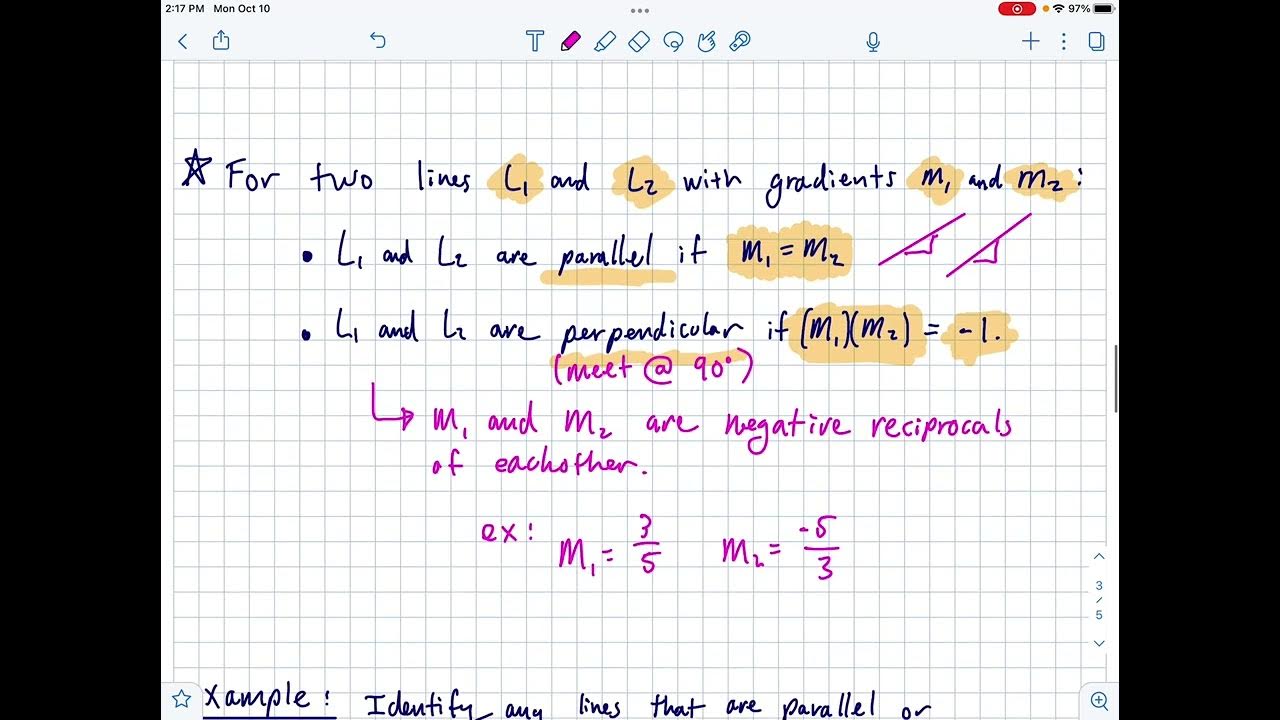 2:17 PM Mon Oct 10
97%
T
☆ For two lines L₁ and L₂ with gradients m₁ and m₂ :
• L₁ and L₂ are parallel if m₁ = m₂
• L₁ and L₂ are perpendicular if (m₁)(m₂) = -1.
(meet @ 90°)
↳ m₁ and m₂ are negative reciprocals
of eachother.
ex: m₁ = 3/5 m₂ = -5/3
3
/
5
xample: Identify any lines that are parallel or